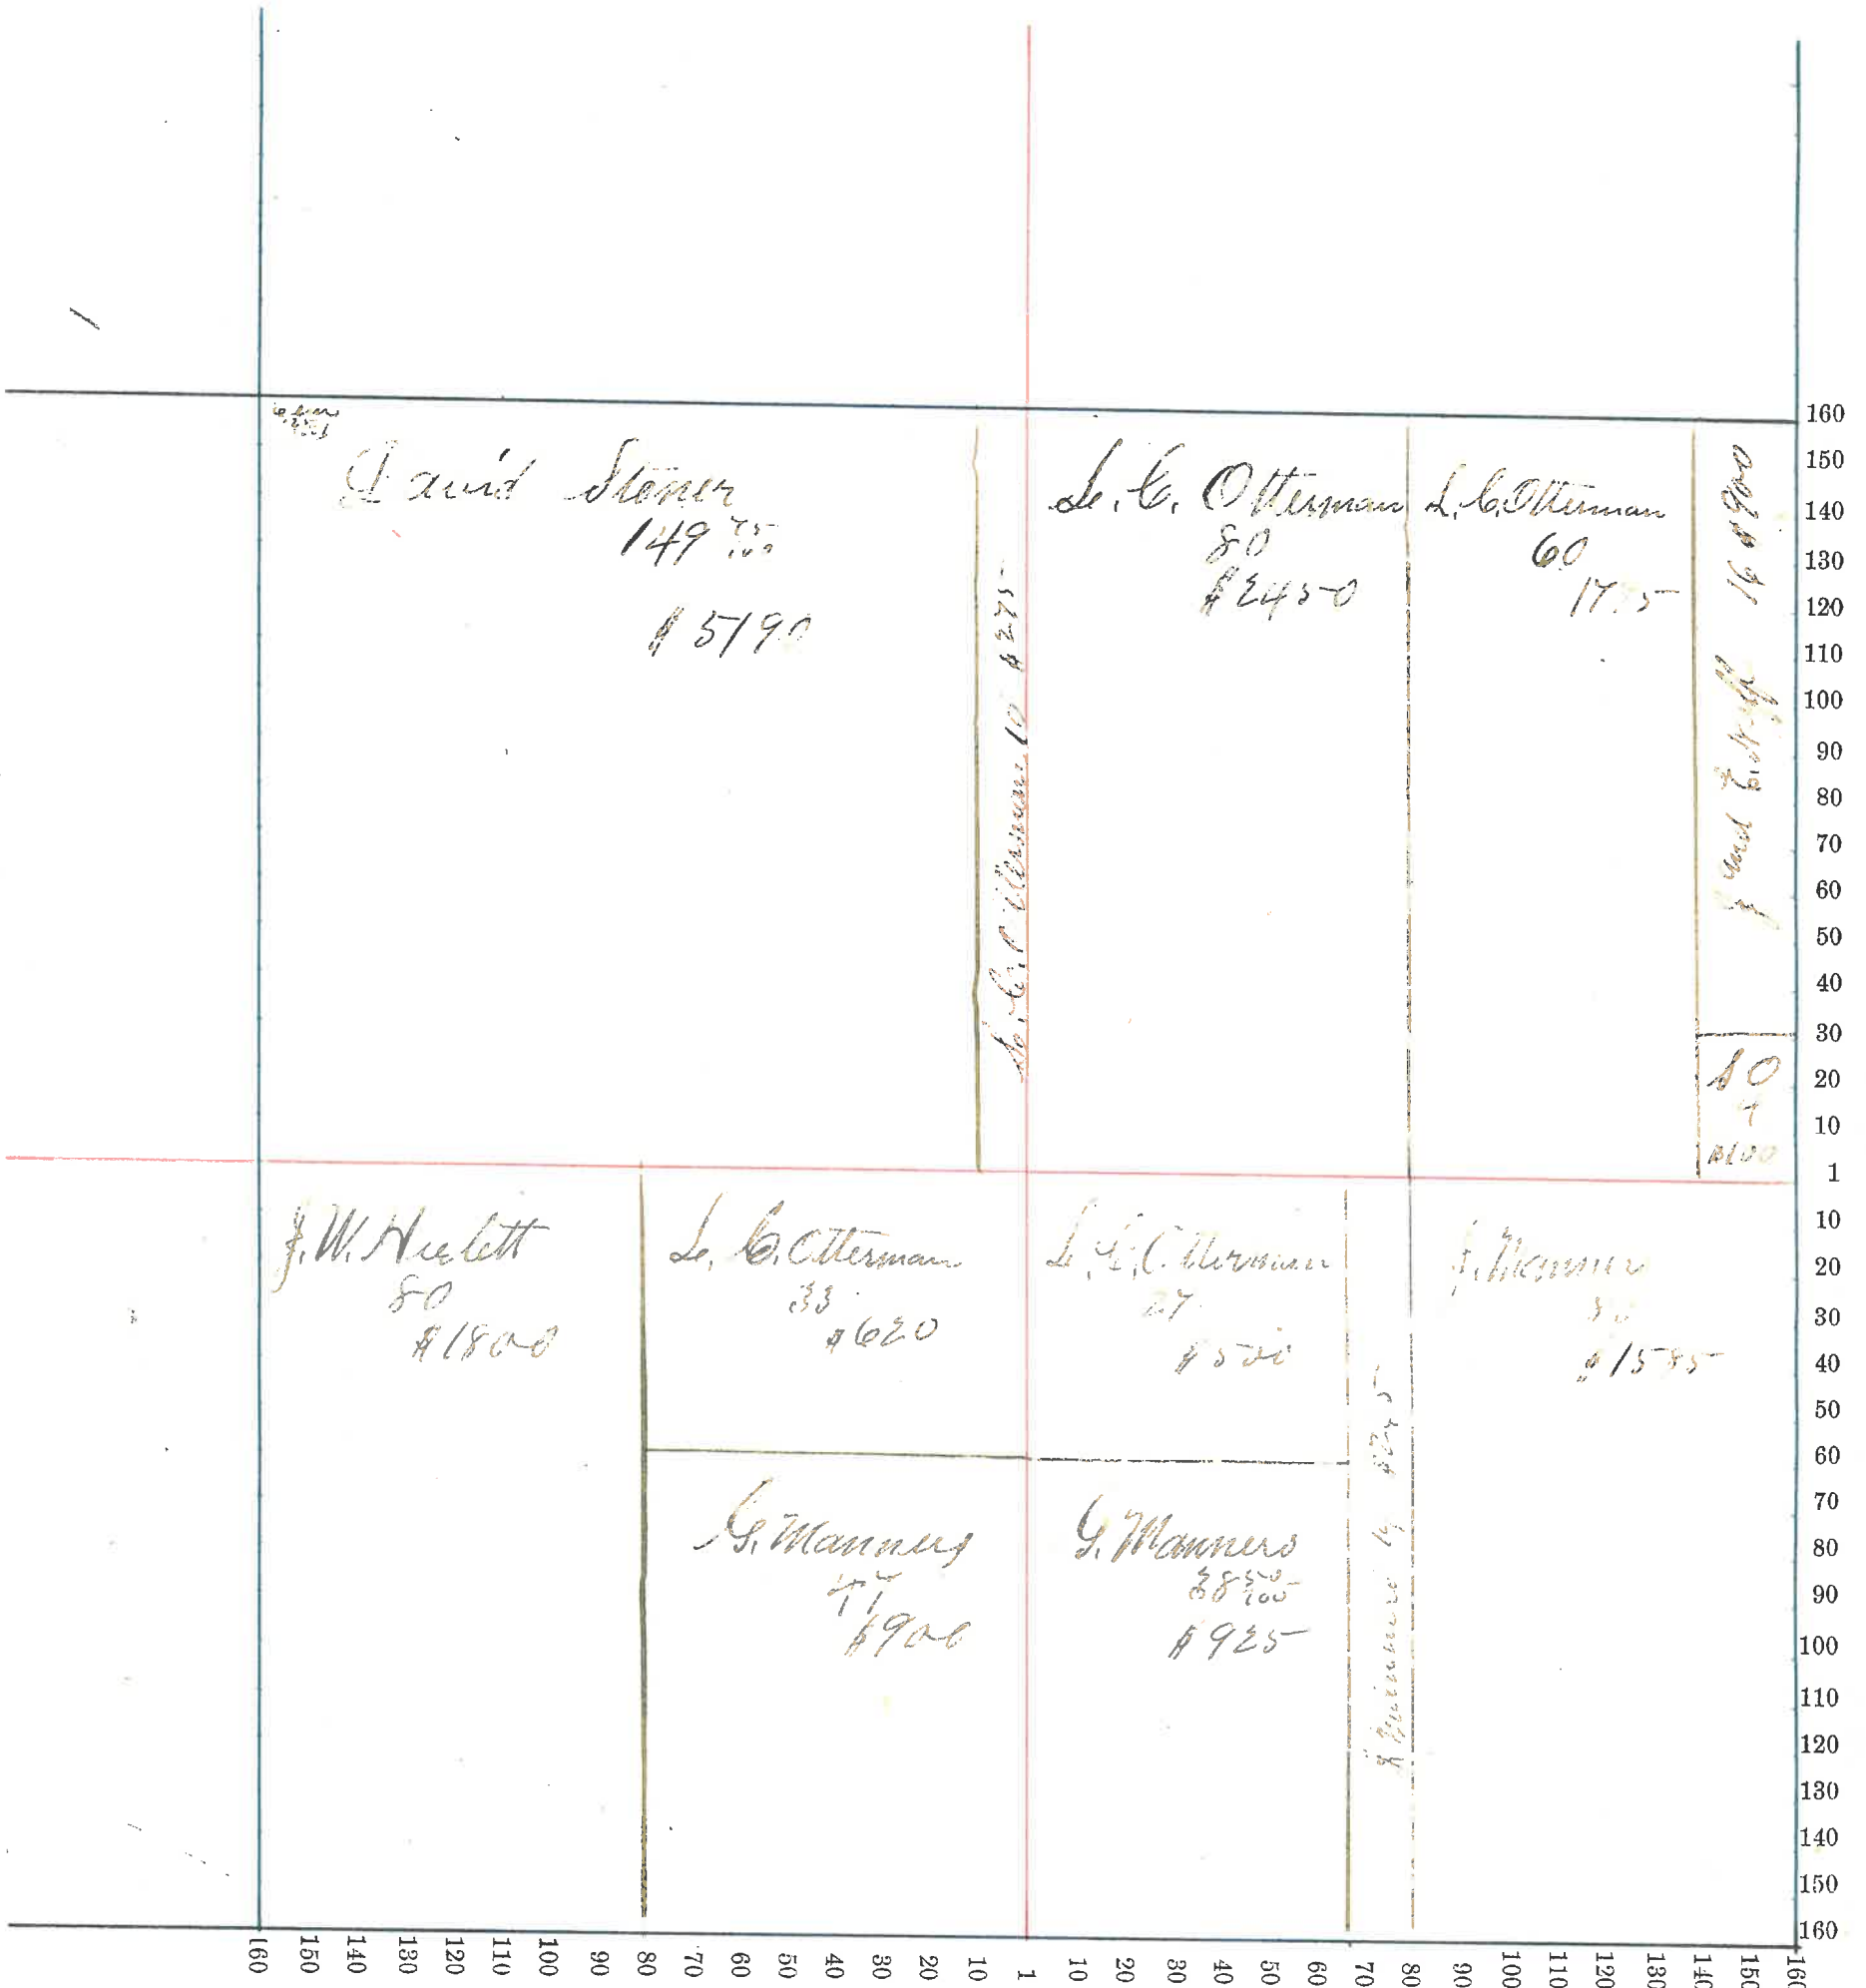 David Stoner
149 75/100
$5190
L. C. Otterman 10 $275
L. C. Otterman
80
$2450
L. C. Otterman
60
16 $900
4
$100
J. W. Hulett
80
$1800
L. C. Otterman
33
$620
L. C. Otterman
27
$500
J. Manners
80
$1585
G. Manners
47
$900
G. Manners
38 50/100
$925
160
150
140
130
120
110
100
90
80
70
60
50
40
30
20
10
1
10
20
30
40
50
60
70
80
90
100
110
120
130
140
150
160
160 150 140 130 120 110 100 90 80 70 60 50 40 30 20 10 1 10 20 30 40 50 60 70 80 90 100 110 120 130 140 150 160